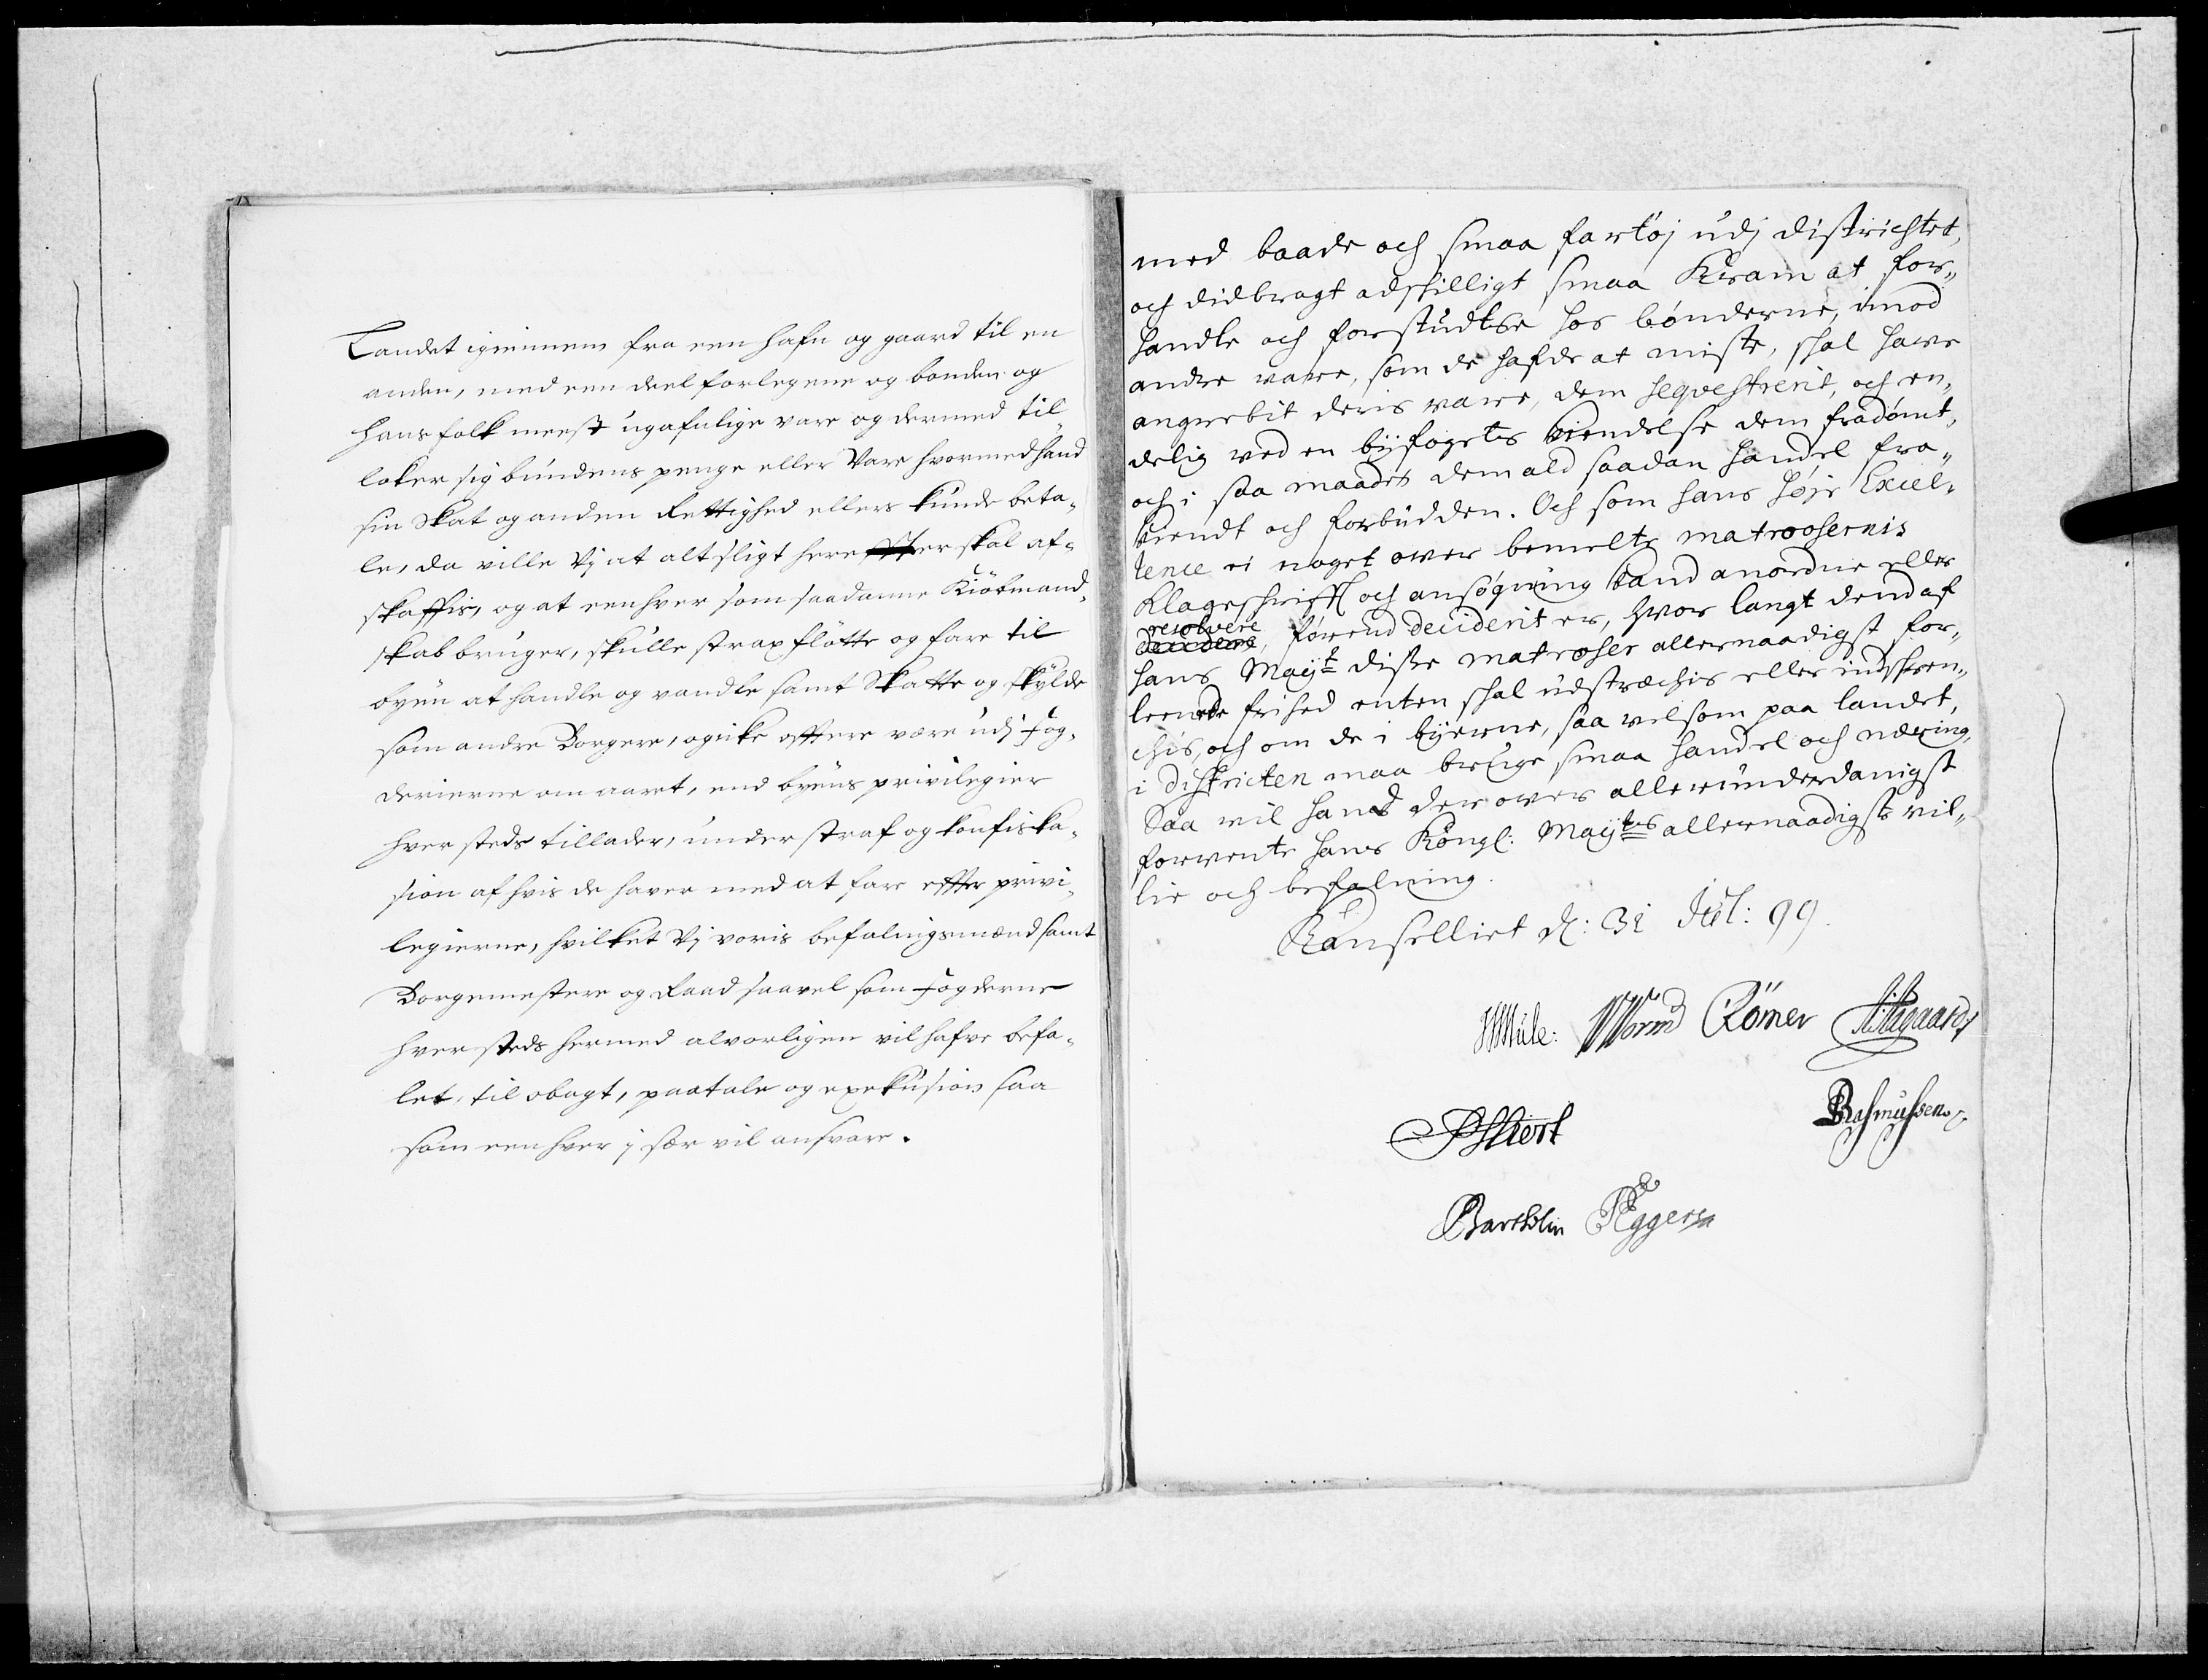 Landet igiennem fra een hafn og gaard til en
anden, med een deel forlegene og bonden og
hans folk meest ugafnlige vare og dermed til
loker sig bundens penge eller Vare hvormed hand
sin Skat og anden Rettighed ellers kunde beta-
le, da ville Vj at alt sligt hereffter skal af-
skaffis, og at een hver som saadanne Kiöbmand-
skab bruger, skulle strax flötte og fare til
byen at handle og vandle samt Skatte og skylde
som andre Borgere, og icke offtere være udj Fog-
derierne om aaret, end byens privilegier
hver steds tillader, under straf og konfiska-
sion af hvis de haver med at fare effter privi-
legierne, hvilket Vj voris befalingsmænd samt
Borgemestere og Raad saavel som Fogderne
hver steds hermed alvorligen vil hafve befa-
let, til obagt, paatale og exekusion saa
som een hver j sær vil ansvare.
med baade och smaa fartöj udj districhtet,
och didbragt adskilligt smaa Kram at for-
handle och forstudtse hos bönderne, imod
andre vare, som de hafde at miste, skal have
angrebit deris vare, dem seqvestrerit, och en-
delig ved en bÿfogets kiendelse dem fradömt,
och i saa maader dem ald saadan handel fra-
kiendt och forbudden. Och som hans höje Excel-
lence ei noget over bemelte matroosernis
Klageschrifft och ansögning kand anordne eller
resolvere
decidere, förend deciderit er, hvor langt dend af
hans Maÿt disse matroser allernaadigst for-
leente frihed enten skal udstræchis eller indskren-
chis, och om de i bÿerne, saa vel som paa landet,
i districten maa bruge smaa handel och næring,
Saa vil hand derover allerunderdanigst
forvente hans Köngl: Maÿts allernaadigste vil-
lie och befalning.
Kanselliet d: 31 Jul: 99.
Mule: Worm Römer Aagaard
PHiort
Rasmussen
Bartholin PEggers